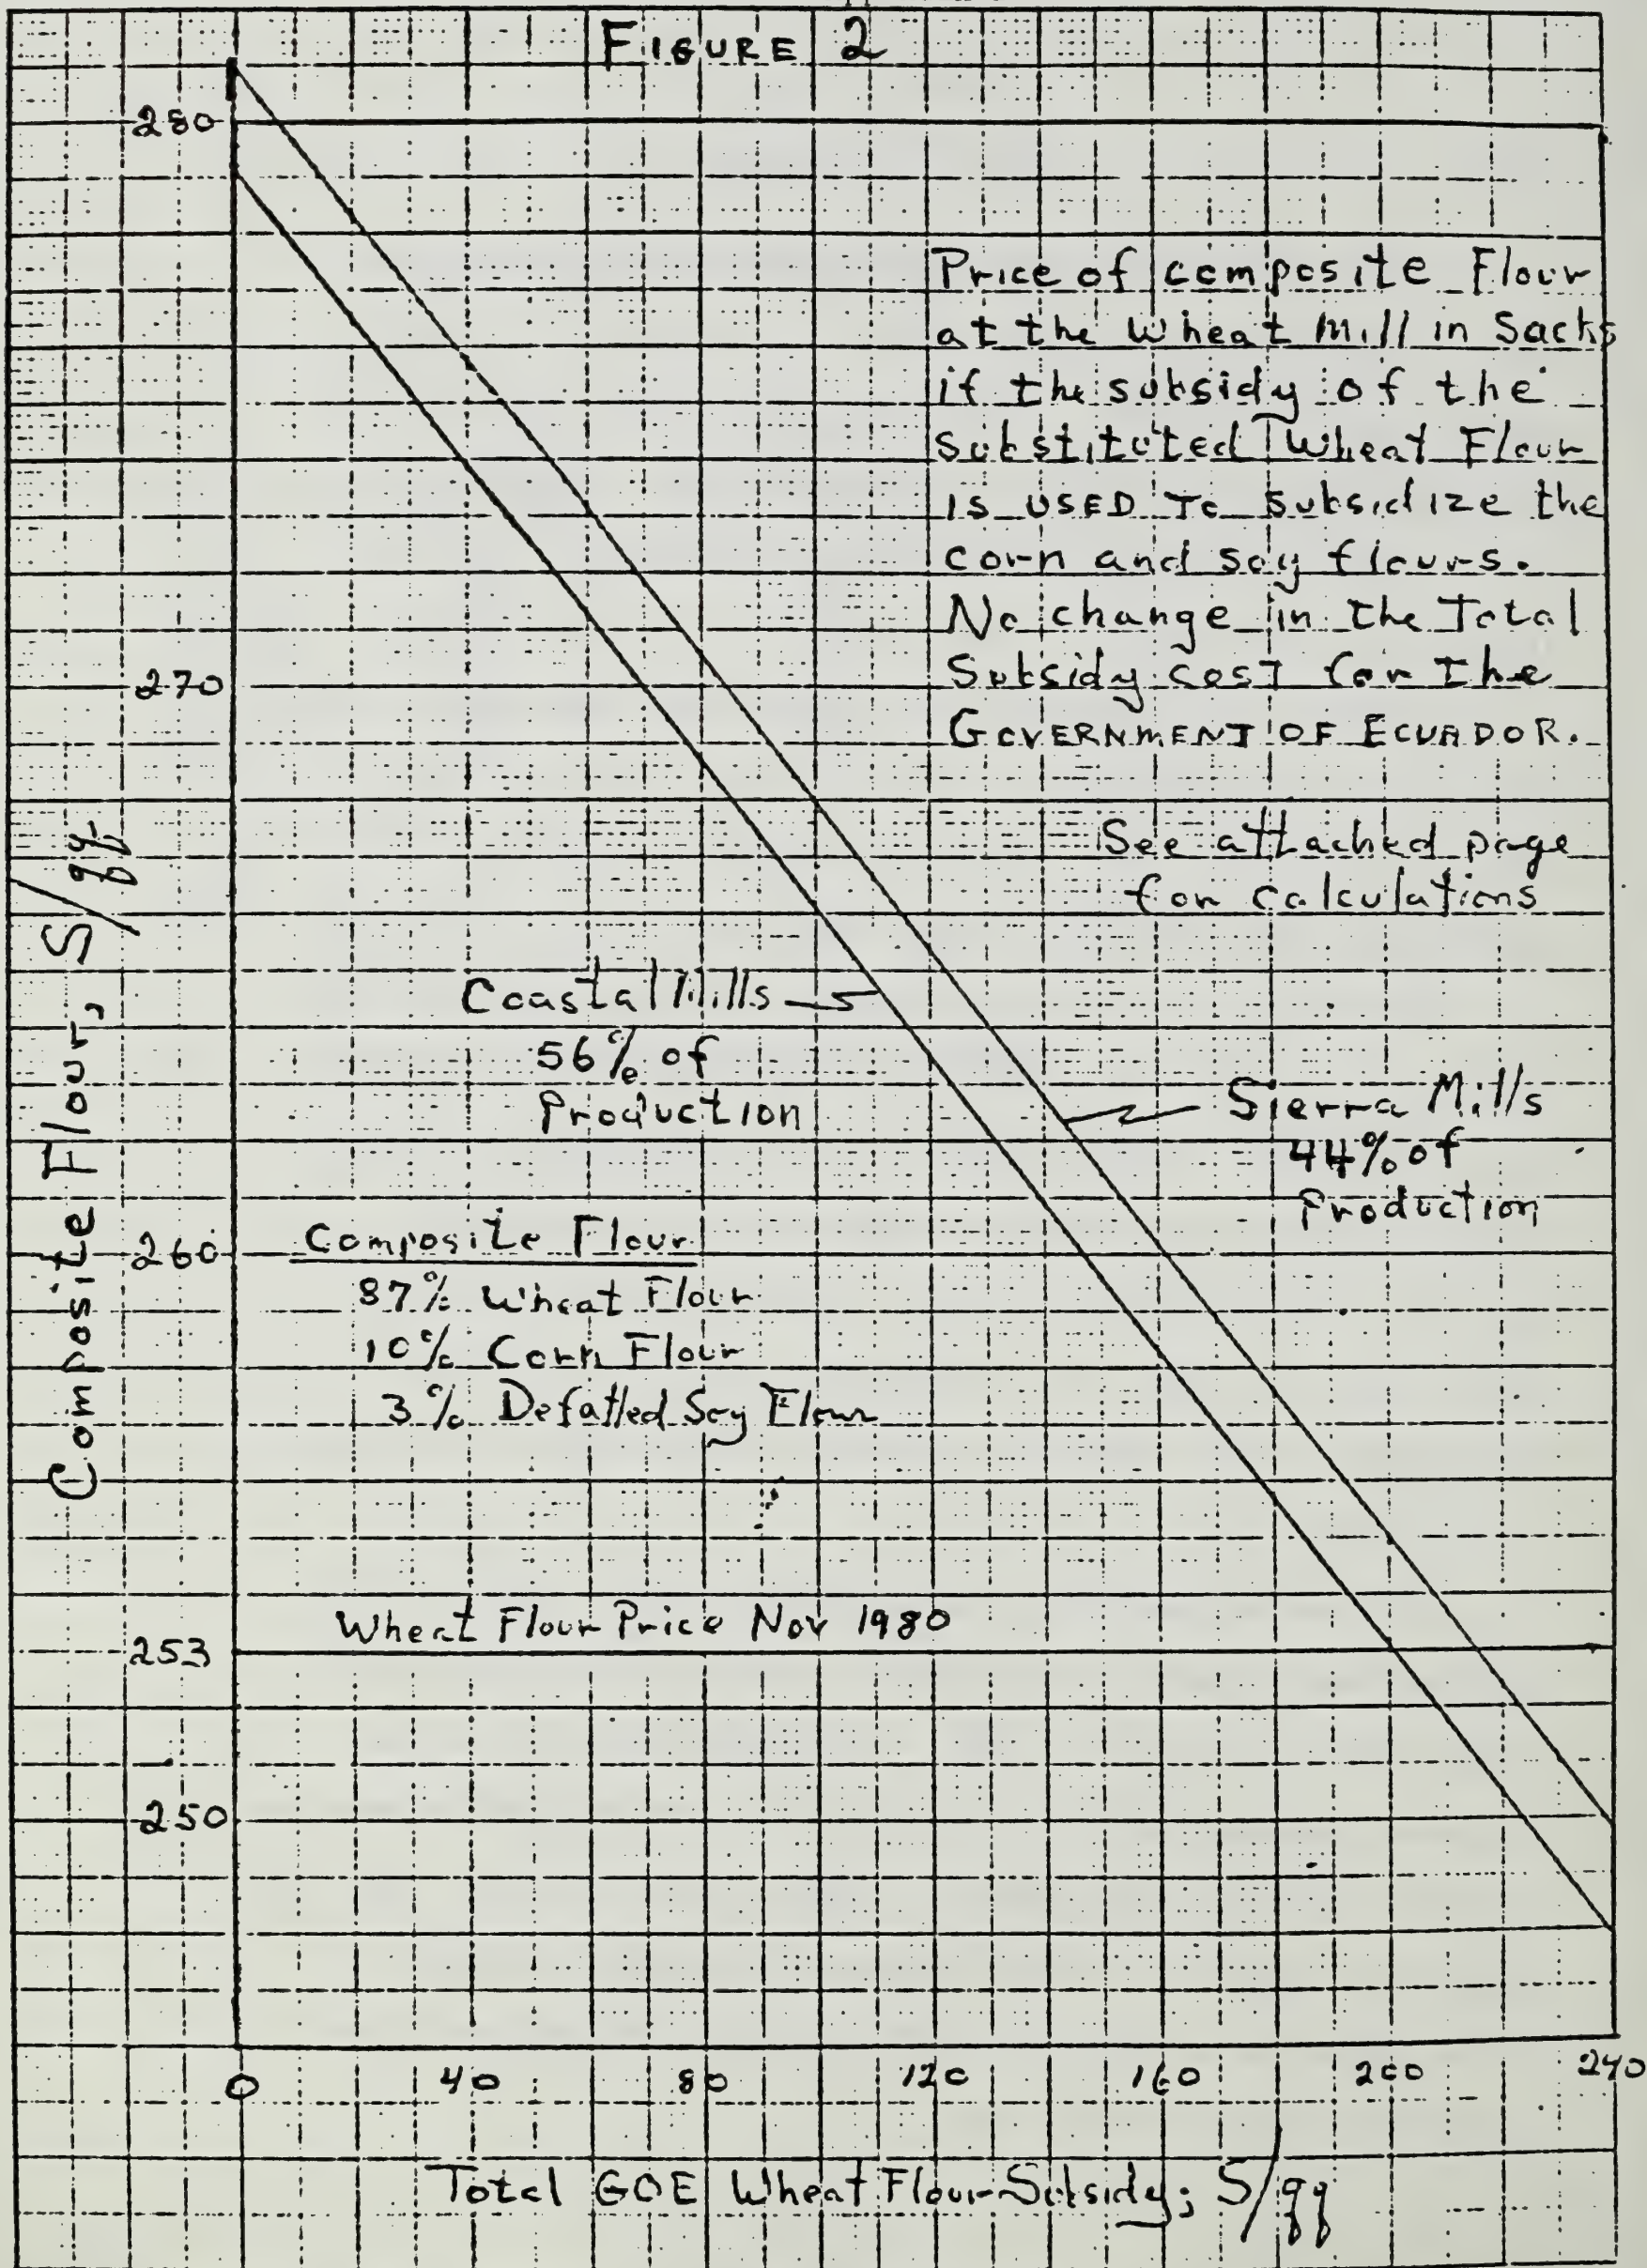 FIGURE 2
280
Price of composite Flour
at the Wheat Mill in Sacks
if the subsidy of the
substituted Wheat Flour
IS USED To subsidize the
corn and soy flours.
No change in the Total
Subsidy cost for the
GOVERNMENT OF ECUADOR.
270
See attached page
for calculations
Composite Flour, S/qq
Coastal Mills
56% of
Production
Sierra Mills
44% of
Production
260
Composite Flour
87% Wheat Flour
10% Corn Flour
3% Defatted Soy Flour
Wheat Flour Price Nov 1980
253
250
0 40 80 120 160 200 240
Total GOE Wheat Flour Subsidy; S/qq